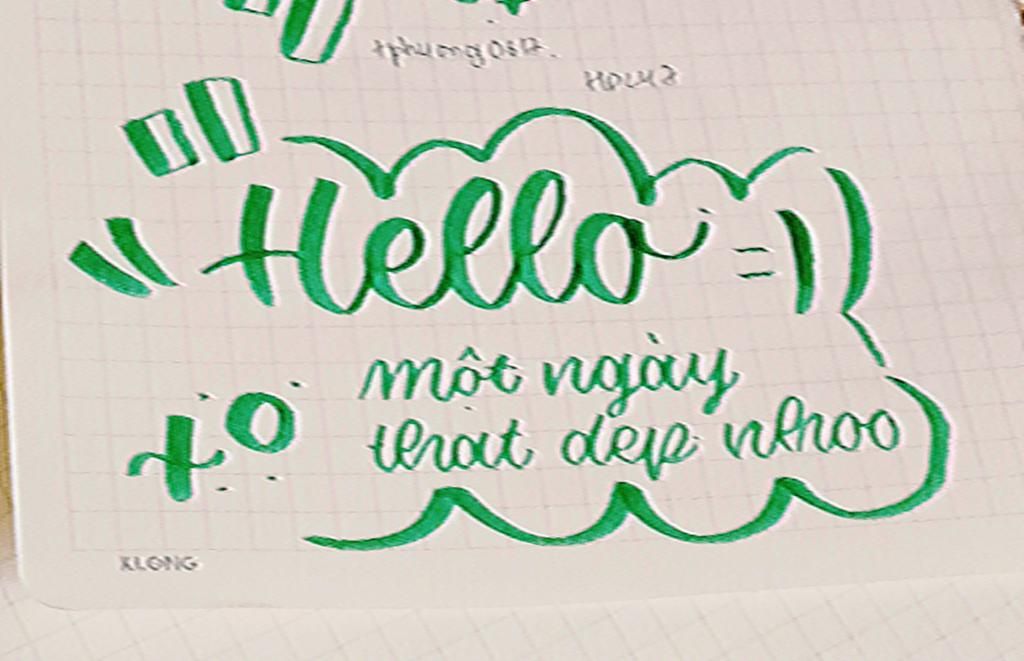 tphuong0617.
Hello =))
một ngày
thật đẹp nhoo
KLONG